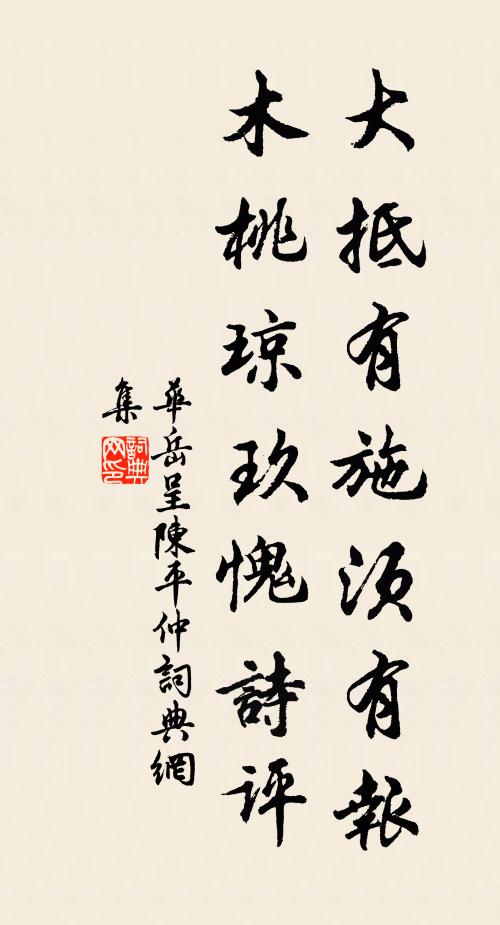 大抵有施須有報
木桃琼玖愧詩评
華岳呈陳平仲詞典網
集
詞典网印